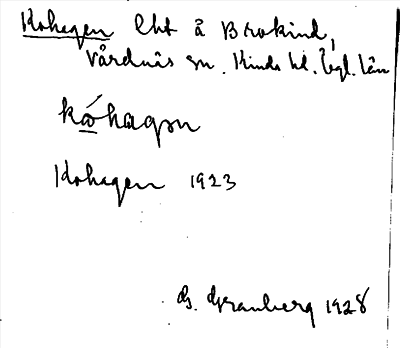 Kohagen lht å Brokind,
Vårdnäs sn. Kinds hd. Ögl. län
kóhagən
Kohagen 1923
G. Granberg 1928